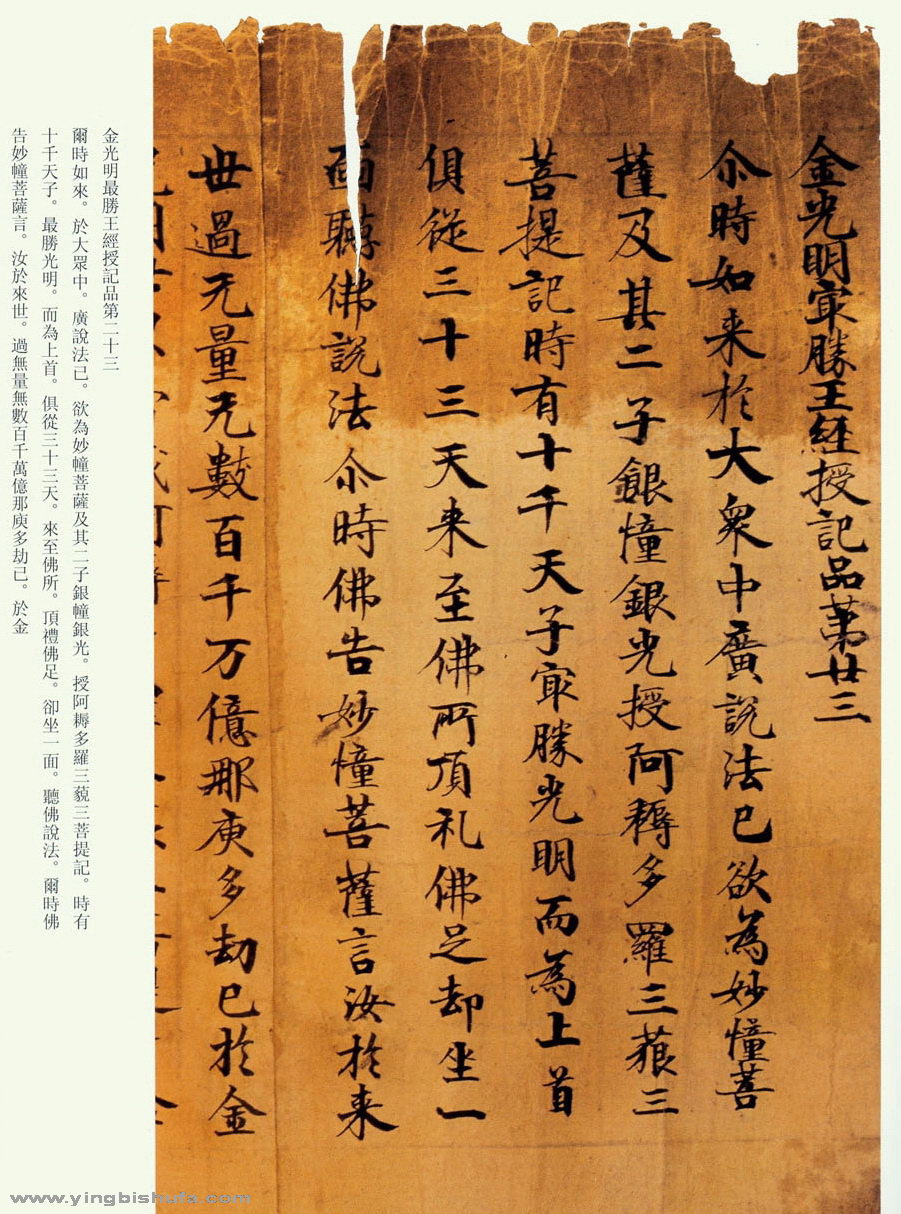 金光明寂勝王經授記品苐廿三
尒時如来於大衆中廣說法已欲為妙憧菩
薩及其二子銀憧銀光授阿耨多羅三藐三
菩提記時有十千天子寂勝光明而為上首
俱從三十三天来至佛所頂礼佛足却坐一
面聽佛說法尒時佛告妙憧菩薩言汝於来
世過无量无數百千万億那庾多劫已於金
金光明最勝王經授記品第二十三
爾時如來。於大眾中。廣說法已。欲為妙幢菩薩及其二子銀幢銀光。授阿耨多羅三藐三菩提記。時有
十千天子。最勝光明。而為上首。俱從三十三天。來至佛所。頂禮佛足。卻坐一面。聽佛說法。爾時佛
告妙幢菩薩言。汝於來世。過無量無數百千萬億那庾多劫已。於金
www.yingbishufa.com